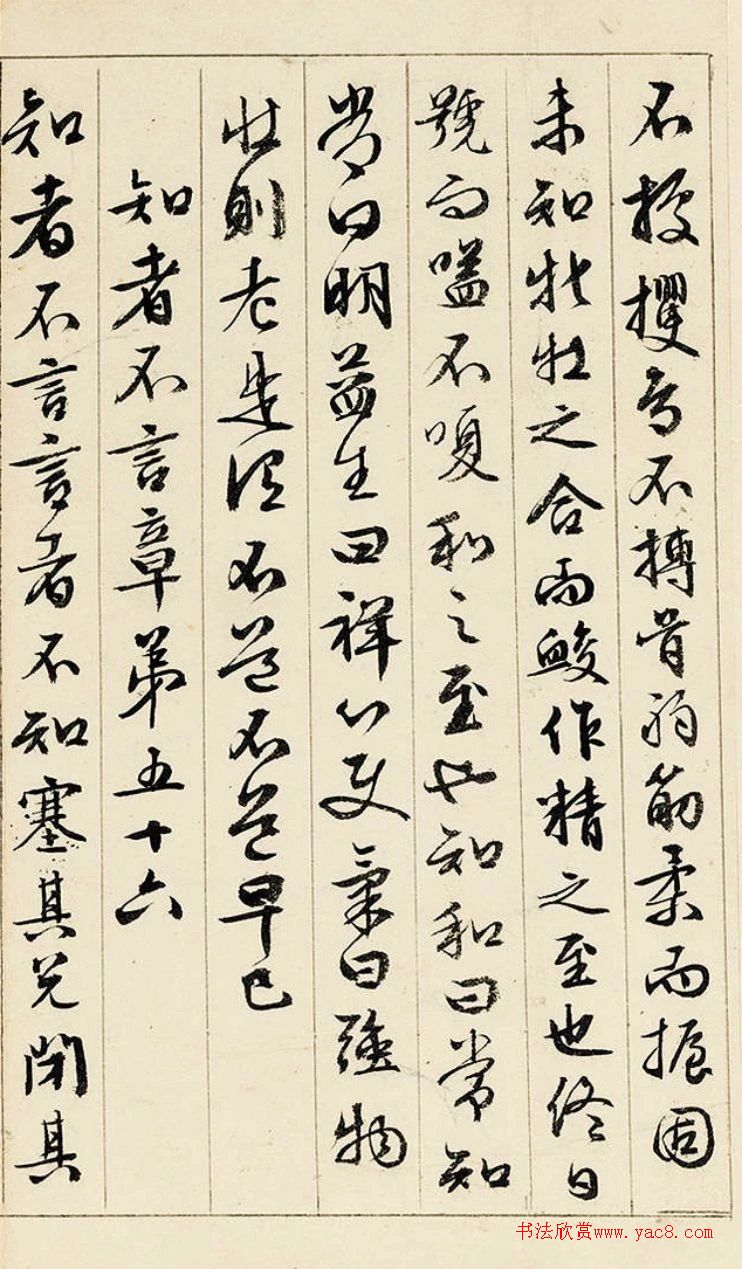 不投攫鸟不搏骨弱筋柔而振固
未知牝牡之合而鮻作精之至也终日
號而嗌不嗄和之至也知和曰常知
常曰明益生曰祥心使氣曰强物
壮則老是谓不道不道早已
知者不言章第五十六
知者不言言者不知塞其兑閉其
书法欣赏www.yac8.com